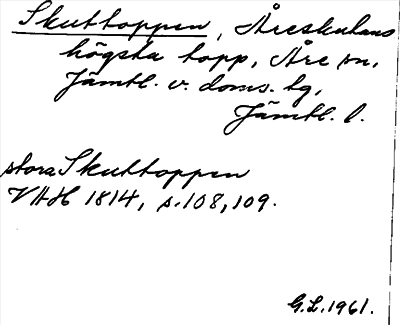 Skuttoppen, Åreskutans
högsta topp, Åre sn,
Jämtl. v. doms. tg,
Jämtl. l.
stora Skuttoppen
VAH 1814, s. 108, 109.
G.L. 1961.